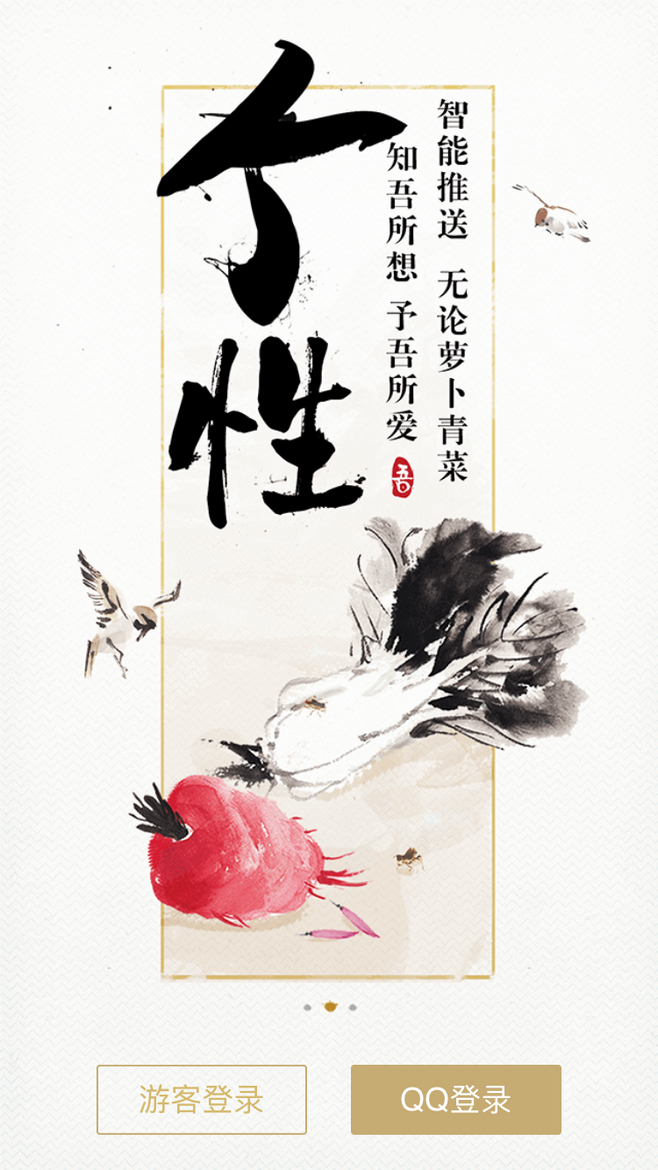 个性
智能推送 无论萝卜青菜
知吾所想 予吾所爱
吾
游客登录
QQ登录